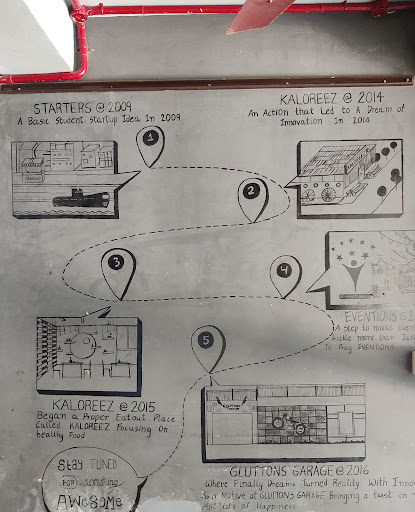 STARTERS @ 2009
A Basic Student Startup Idea In 2009
KALOREEZ @ 2014
An Action that Led to A Dream of
Innovation In 2014
1
2
3
4
5
EVENTIONS @
A Step to Make
more than
To Pray EVENTIONS
KALOREEZ @ 2015
Began a Proper Eatout Place
Called KALOREEZ Focusing On
healthy Food
GLUTTONS GARAGE @ 2016
Where Finally Dreams Turned Reality With
Motive at GLUTTONS GARAGE Bringing a twist in
And Lots of Happiness
STAY TUNED
FOR
AWESOME